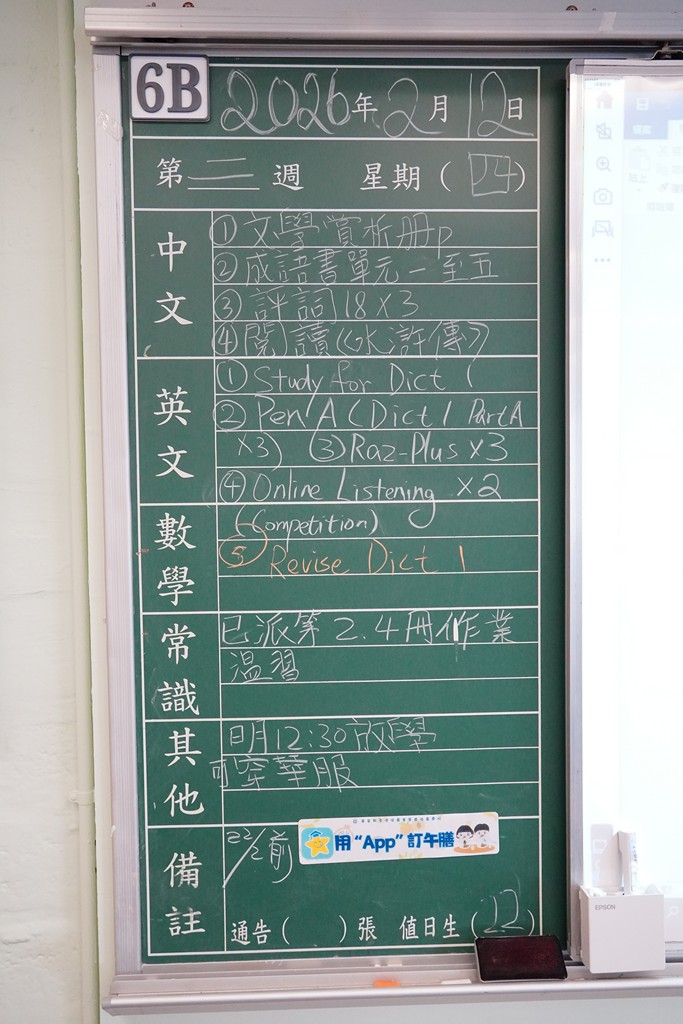 6B
2026年2月12日
第二週 星期(四)
中文
①文學賞析册p
②成語書單元一至五
③評詞18×3
④閱讀《水滸傳》
英文
①Study for Dict 1
②Pen A (Dict 1 Part A
×3) ③Raz-Plus ×3
④Online Listening ×2
(Competition)
數學
⑤Revise Dict 1
常識
已派第2.4冊作業
溫習
其他
明12:30放學
可穿華服
備註
22/2前
用“App”訂午膳
通告( )張 值日生(22)
EPSON